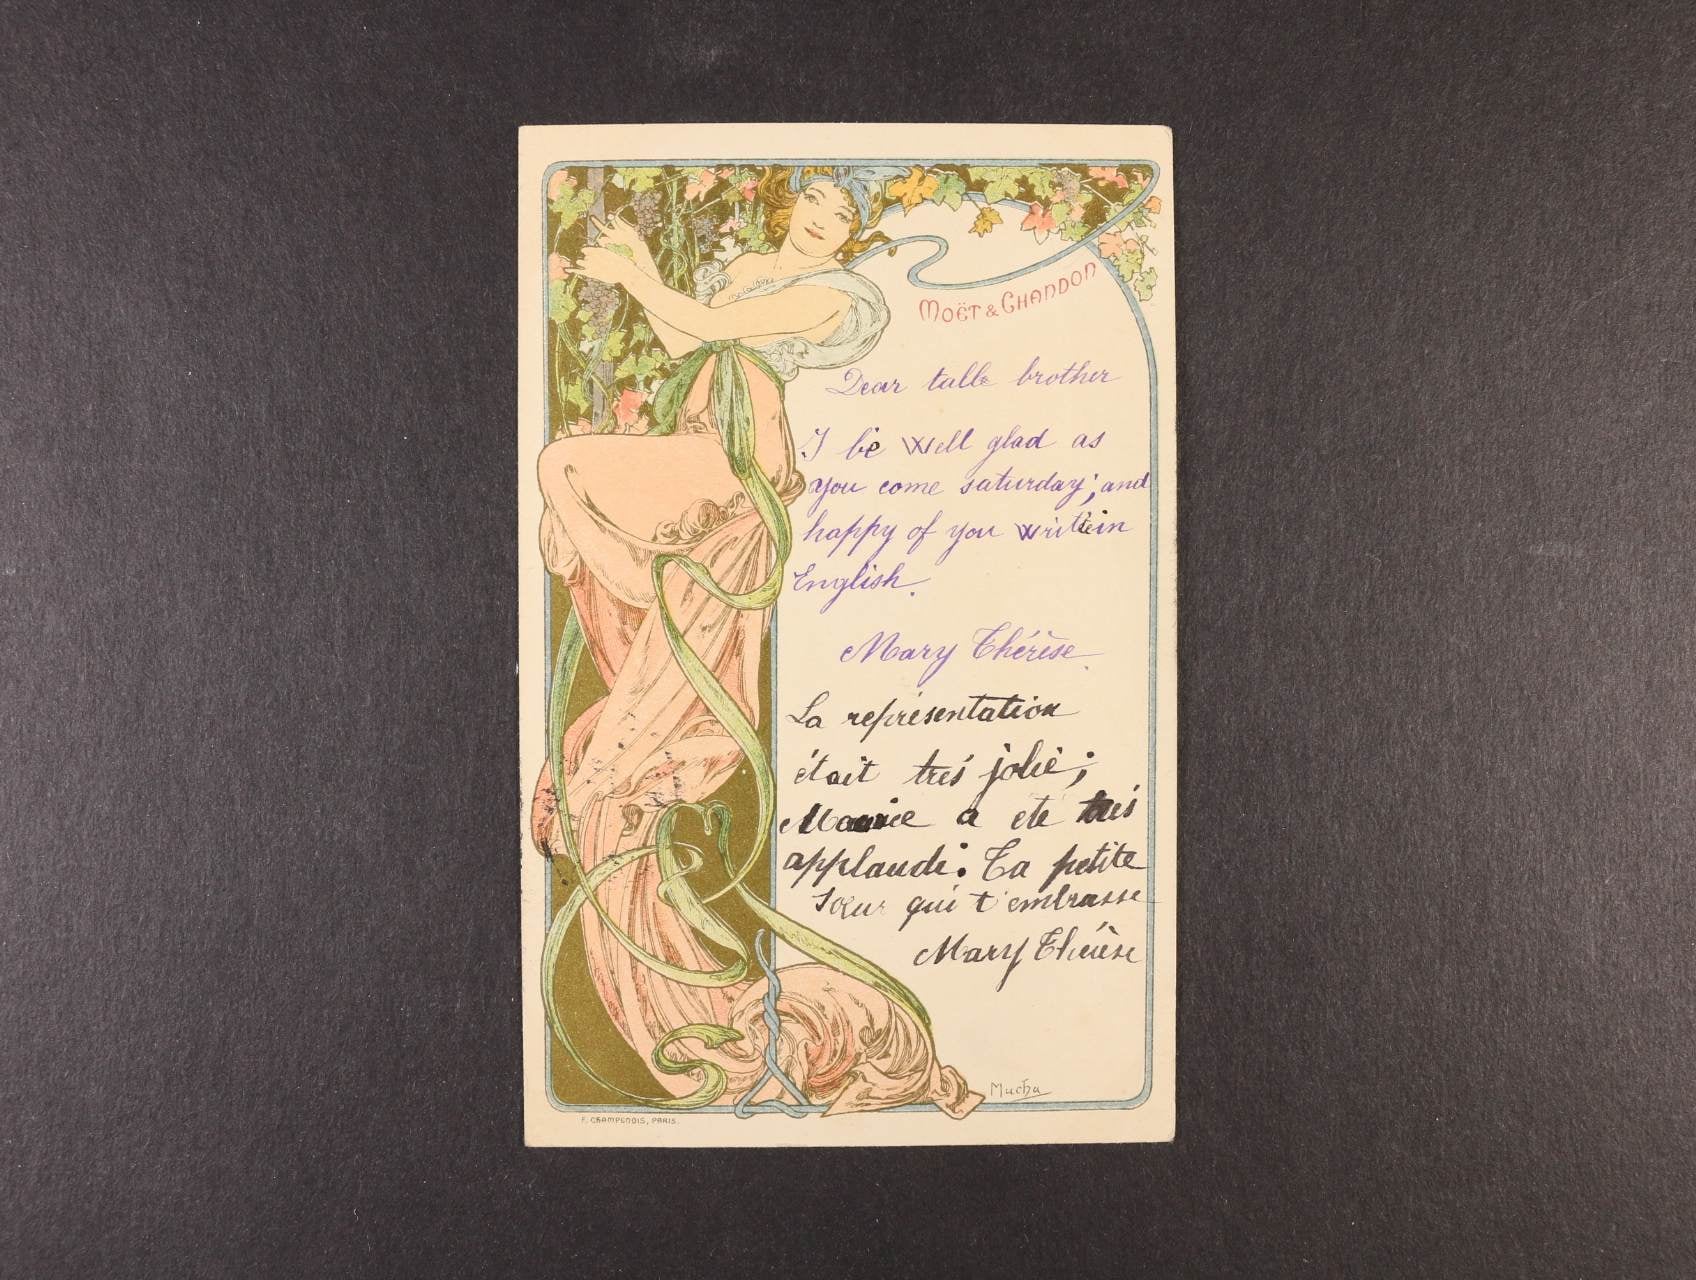 MOËT & CHANDON
Dear talle brother
I be well glad as
you come saturday; and
happy of you writtein
English.
Mary Thérèse
La représentation
était trés jolie;
a eté trés
applaudi. Ta petite
Soeur qui t'embrasse
Mary Thérèse
Mucha
F. CHAMPENOIS, PARIS.